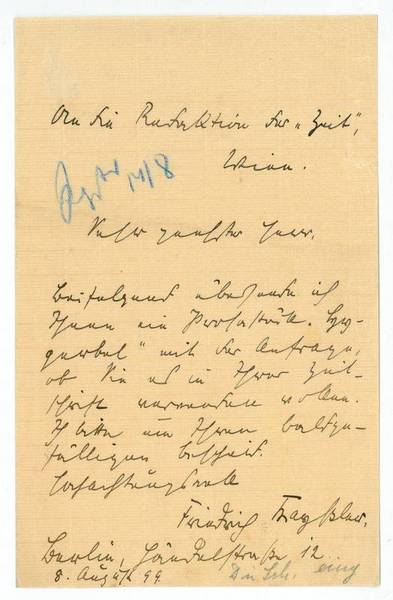 An die Redaktion der „Zeit“,
Wien.
14/8
Sehr geehrter Herr.
Beifolgend übersende ich
Ihnen ein Prosastück
mit der Anfrage,
ob Sie es in Ihrer Zeit-
schrift verwenden wollen.
Ich bitte um Ihren baldge-
fälligen Bescheid.
Hochachtungsvoll
Friedrich Kayßler.
Berlin, Händelstraße 12
8. August 99